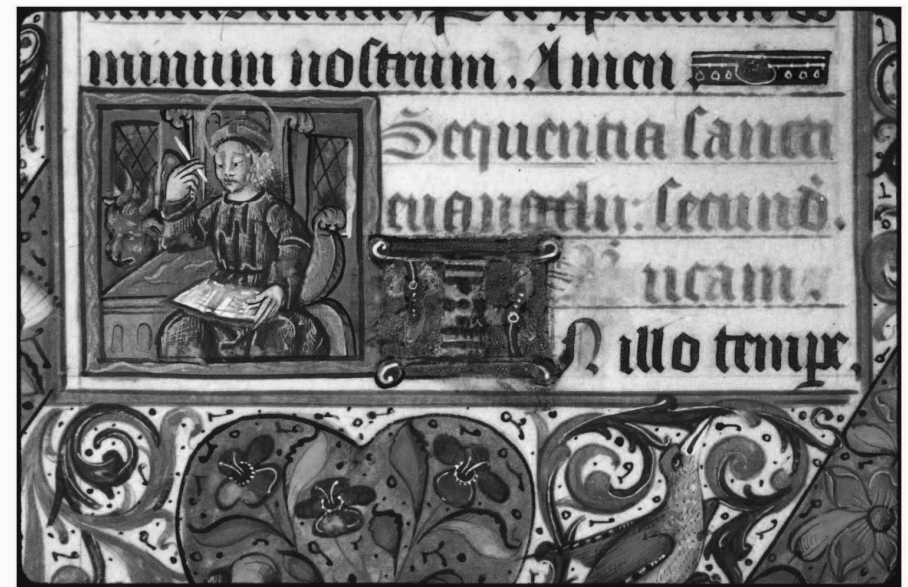 minum nostrum. Amen
Sequentia sancti
euangelii: secund̄.
ucam.
N illo tempr̄e,